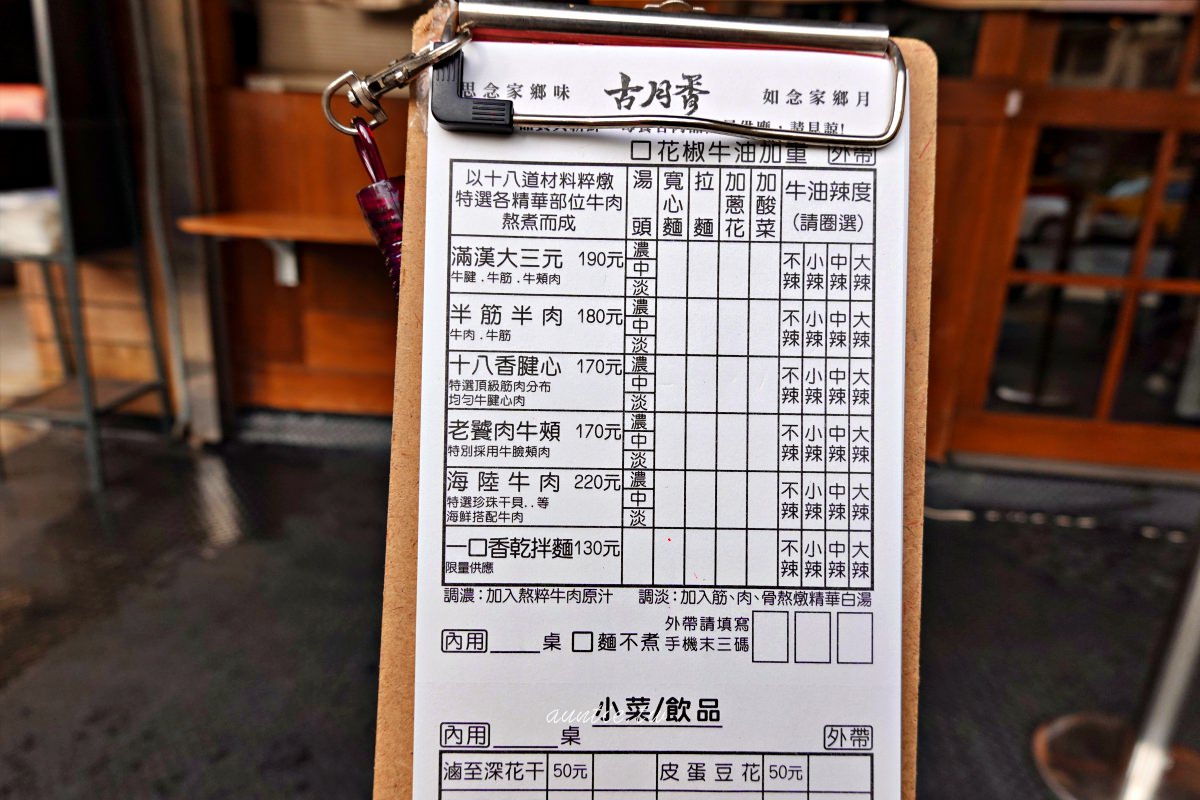 思念家鄉味 古月香 如念家鄉月
請見諒!
□花椒牛油加重 外帶
以十八道材料粹燉
特選各精華部位牛肉
熬煮而成
湯頭 寬心麵 拉麵 加蔥花 加酸菜 牛油辣度
(請圈選)
滿漢大三元 190元 濃 中 淡 不辣 小辣 中辣 大辣
牛腱.牛筋.牛頰肉
半筋半肉 180元 濃 中 淡 不辣 小辣 中辣 大辣
牛肉.牛筋
十八香腱心 170元 濃 中 淡 不辣 小辣 中辣 大辣
特選頂級筋肉分布
均勻牛腱心肉
老饕肉牛頰 170元 濃 中 淡 不辣 小辣 中辣 大辣
特別採用牛臉頰肉
海陸牛肉 220元 濃 中 淡 不辣 小辣 中辣 大辣
特選珍珠干貝..等
海鮮搭配牛肉
一口香乾拌麵130元 不辣 小辣 中辣 大辣
限量供應
調濃:加入熬粹牛肉原汁 調淡:加入筋、肉、骨熬燉精華白湯
外帶請填寫
內用____桌 □麵不煮 手機末三碼
小菜/飲品
內用____桌 外帶
滷至深花干 50元 皮蛋豆花 50元